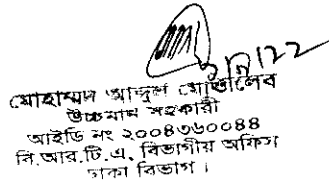 ৬/৭/২২
মোহাম্মদ আব্দুল মোত্তালেব
উচ্চমান সহকারী
আইডি নং ২০০৪৩৬০০৪৪
বি.আর.টি.এ, বিভাগীয় অফিস
ঢাকা বিভাগ।